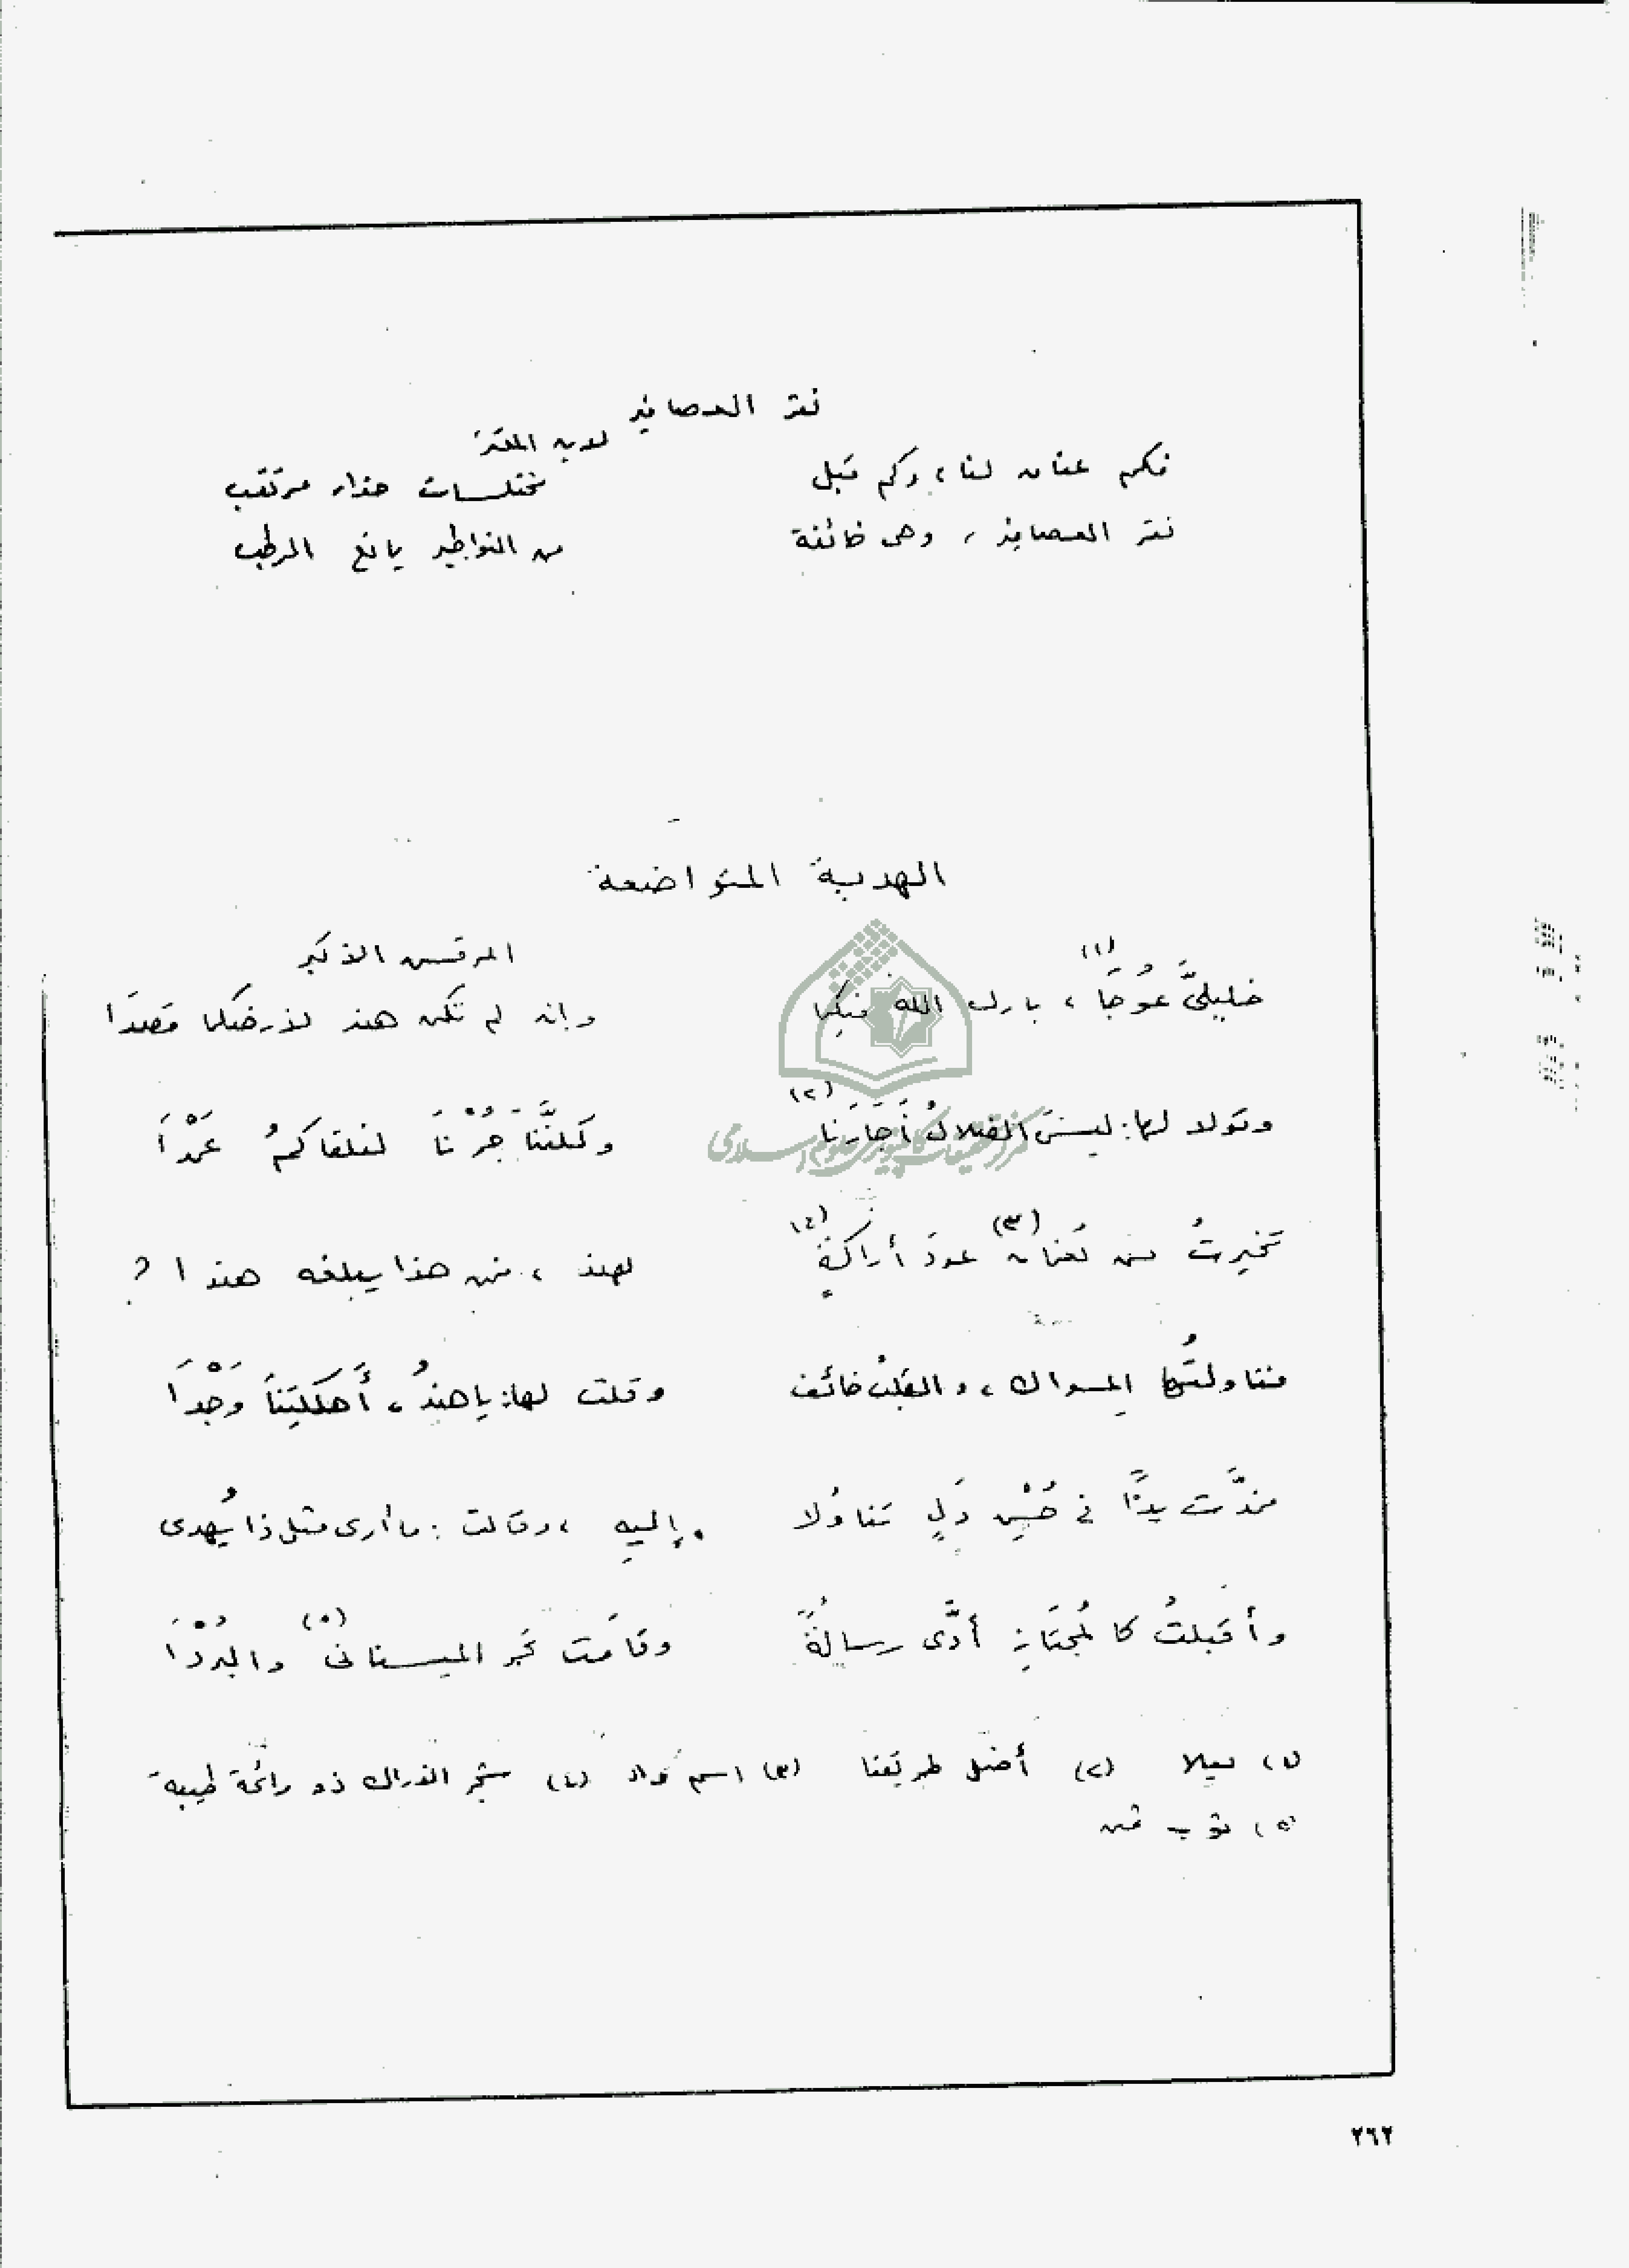 نقر العصافير
لابن المعتز
فكم عناق لنا، وكم قبل مختلسات حذار مرتقب
نقر العصافير، وهى خائفة من النواطير يانع الرطب
الهدية المتواضعة
المرقش الأكبر
خليليَّ عُوجَا (١)، بارك الله فيكما وإن لم تكن هند لأرضكما قصدَا
وقولا لها: ليسَ الضلالُ أَجَارَنا (٢) ولكنَّنا جُرْنَا لنلقاكمُ عَمْدَا
تخيرتُ من نَعمان (٣) عودَ أراكةٍ (٤) لهند، فمن هذا يبلغه هندا؟
فناولتُها المِسواك، والقلبُ خائف وقلت لها: ياهندُ، أَهلكتِنَا وَجْدَا
فمدَّت يدًا في حُسْنِ دَلٍ تناوُلا إليهِ، وقالت: ما أرى مثل ذا يُهدى
وأقبلتُ كالمُجتَازِ أدَّى رسالةً وقامَت تجر الميسنانى (٥) والبُرْدَا
(١) ميلا (٢) أضل طريقنا (٣) اسم واد (٤) شجر الأراك ذو رائحة طيبة
(٥) ثوب
٢٦٢
مركز تحقیقات کامپیوتری علوم اسلامی